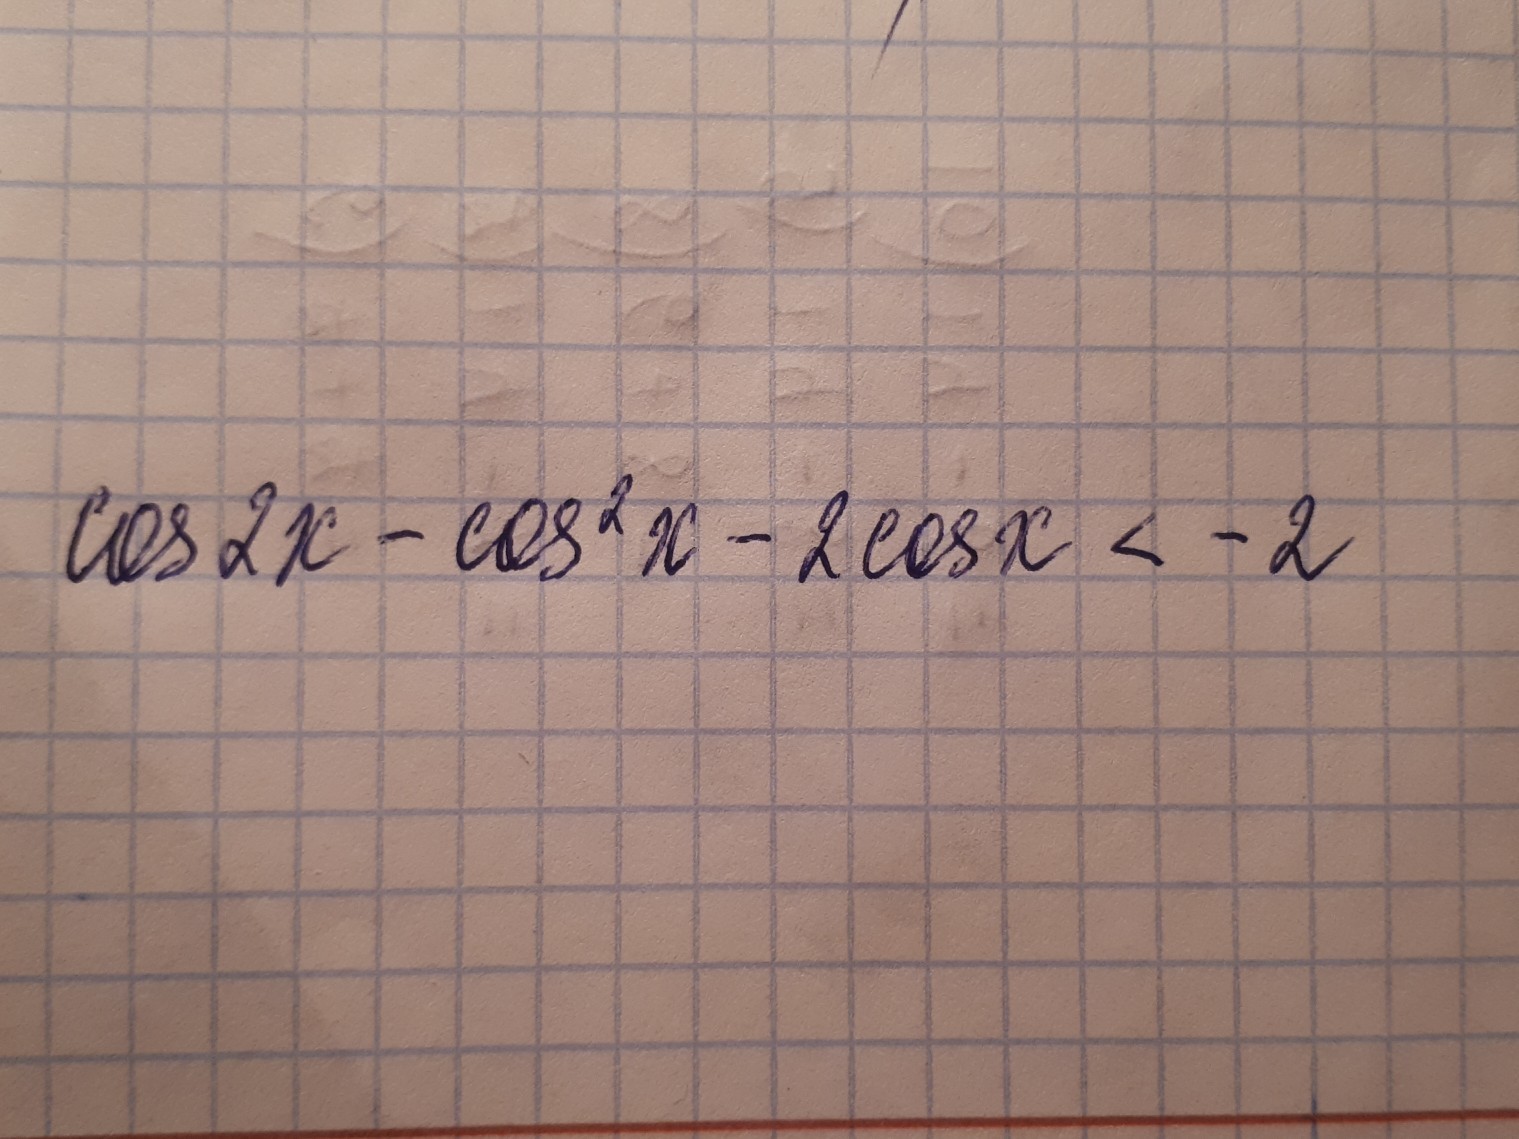 cos 2x - cos²x - 2cosx < -2